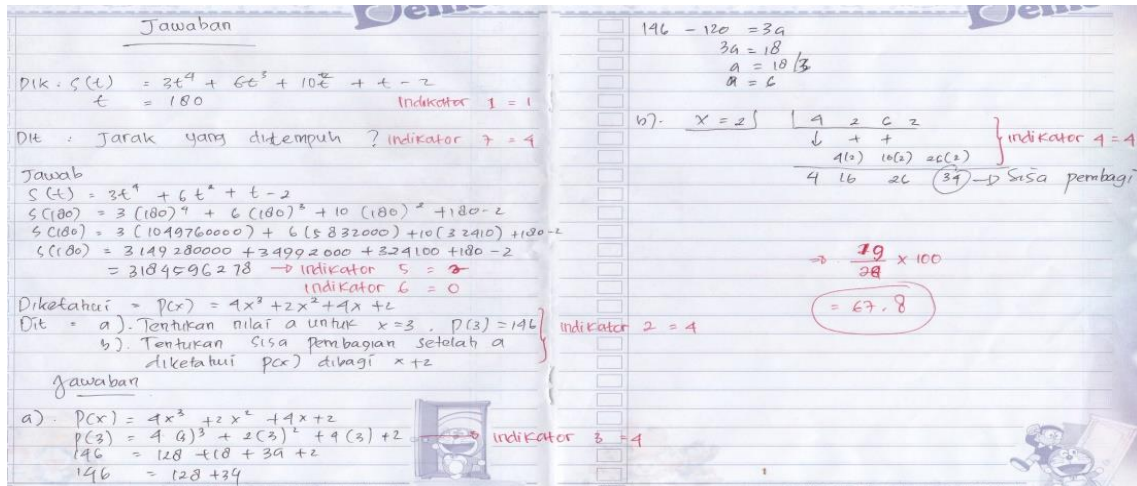 Jawaban
Dik . S(t) = 3t⁴ + 6t³ + 10t² + t - 2
t = 180
Indikator 1 = 1
Dit : Jarak yang ditempuh ? indikator 7 = 4
Jawab
S(t) = 3t⁴ + 6t² + t - 2
S(180) = 3 (180)⁴ + 6 (180)³ + 10 (180)² + 180 - 2
S(180) = 3 (1049760000) + 6 (5832000) + 10 (32410) + 180 - 2
S(180) = 3149280000 + 34992000 + 324100 + 180 - 2
= 3184596278 → indikator 5 = 2
indikator 6 = 0
Diketahui = P(x) = 4x³ + 2x² + 4x + 2
Dit = a). Tentukan nilai a untuk x = 3 . P(3) = 146
b). Tentukan sisa pembagian setelah a
diketahui P(x) dibagi x + 2
indikator 2 = 4
Jawaban
a). P(x) = 4x³ + 2x² + 4x + 2
P(3) = 4 (3)³ + 2(3)² + 4(3) + 2 → indikator 3 = 4
146 = 128 + 18 + 3a + 2
146 = 128 + 3a
146 - 120 = 3a
3a = 18
a = 18/3
a = 6
b). x = 2 4 2 6 2
↓ + +
4(2) 16(2) 26(2)
indikator 4 = 4
4 16 26 34 → Sisa pembagi
⇒ 19/28 x 100
= 67.8